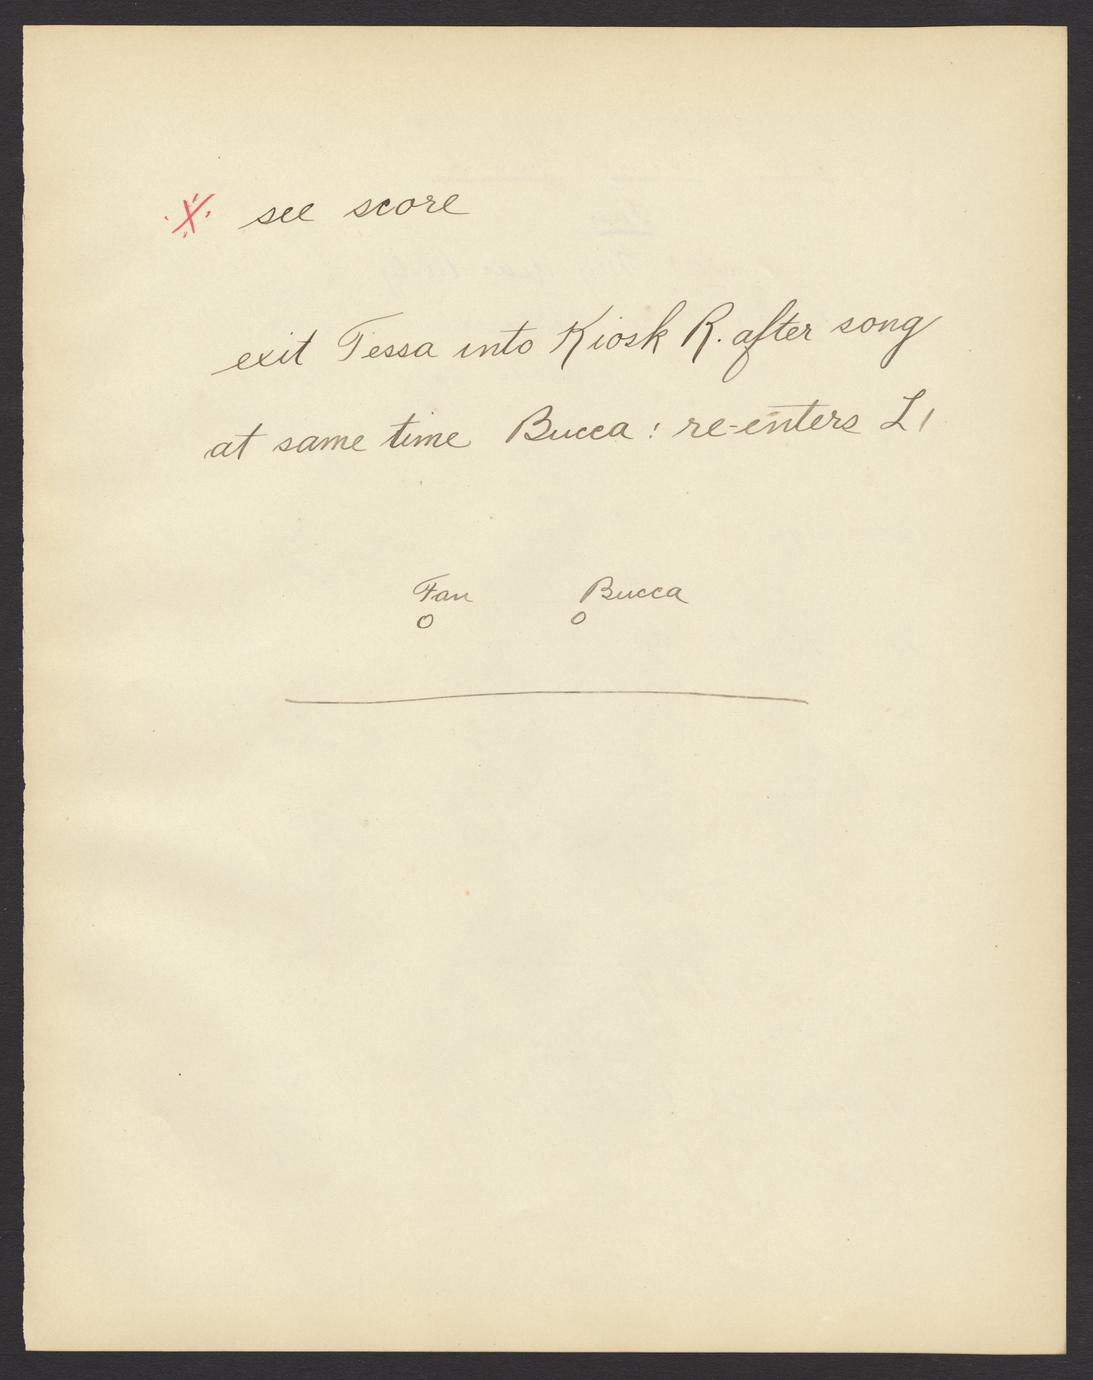 ※ see score
exit Tessa into Kiosk R. after song
at same time Bucca: re-enters L1
Fan Bucca
o o